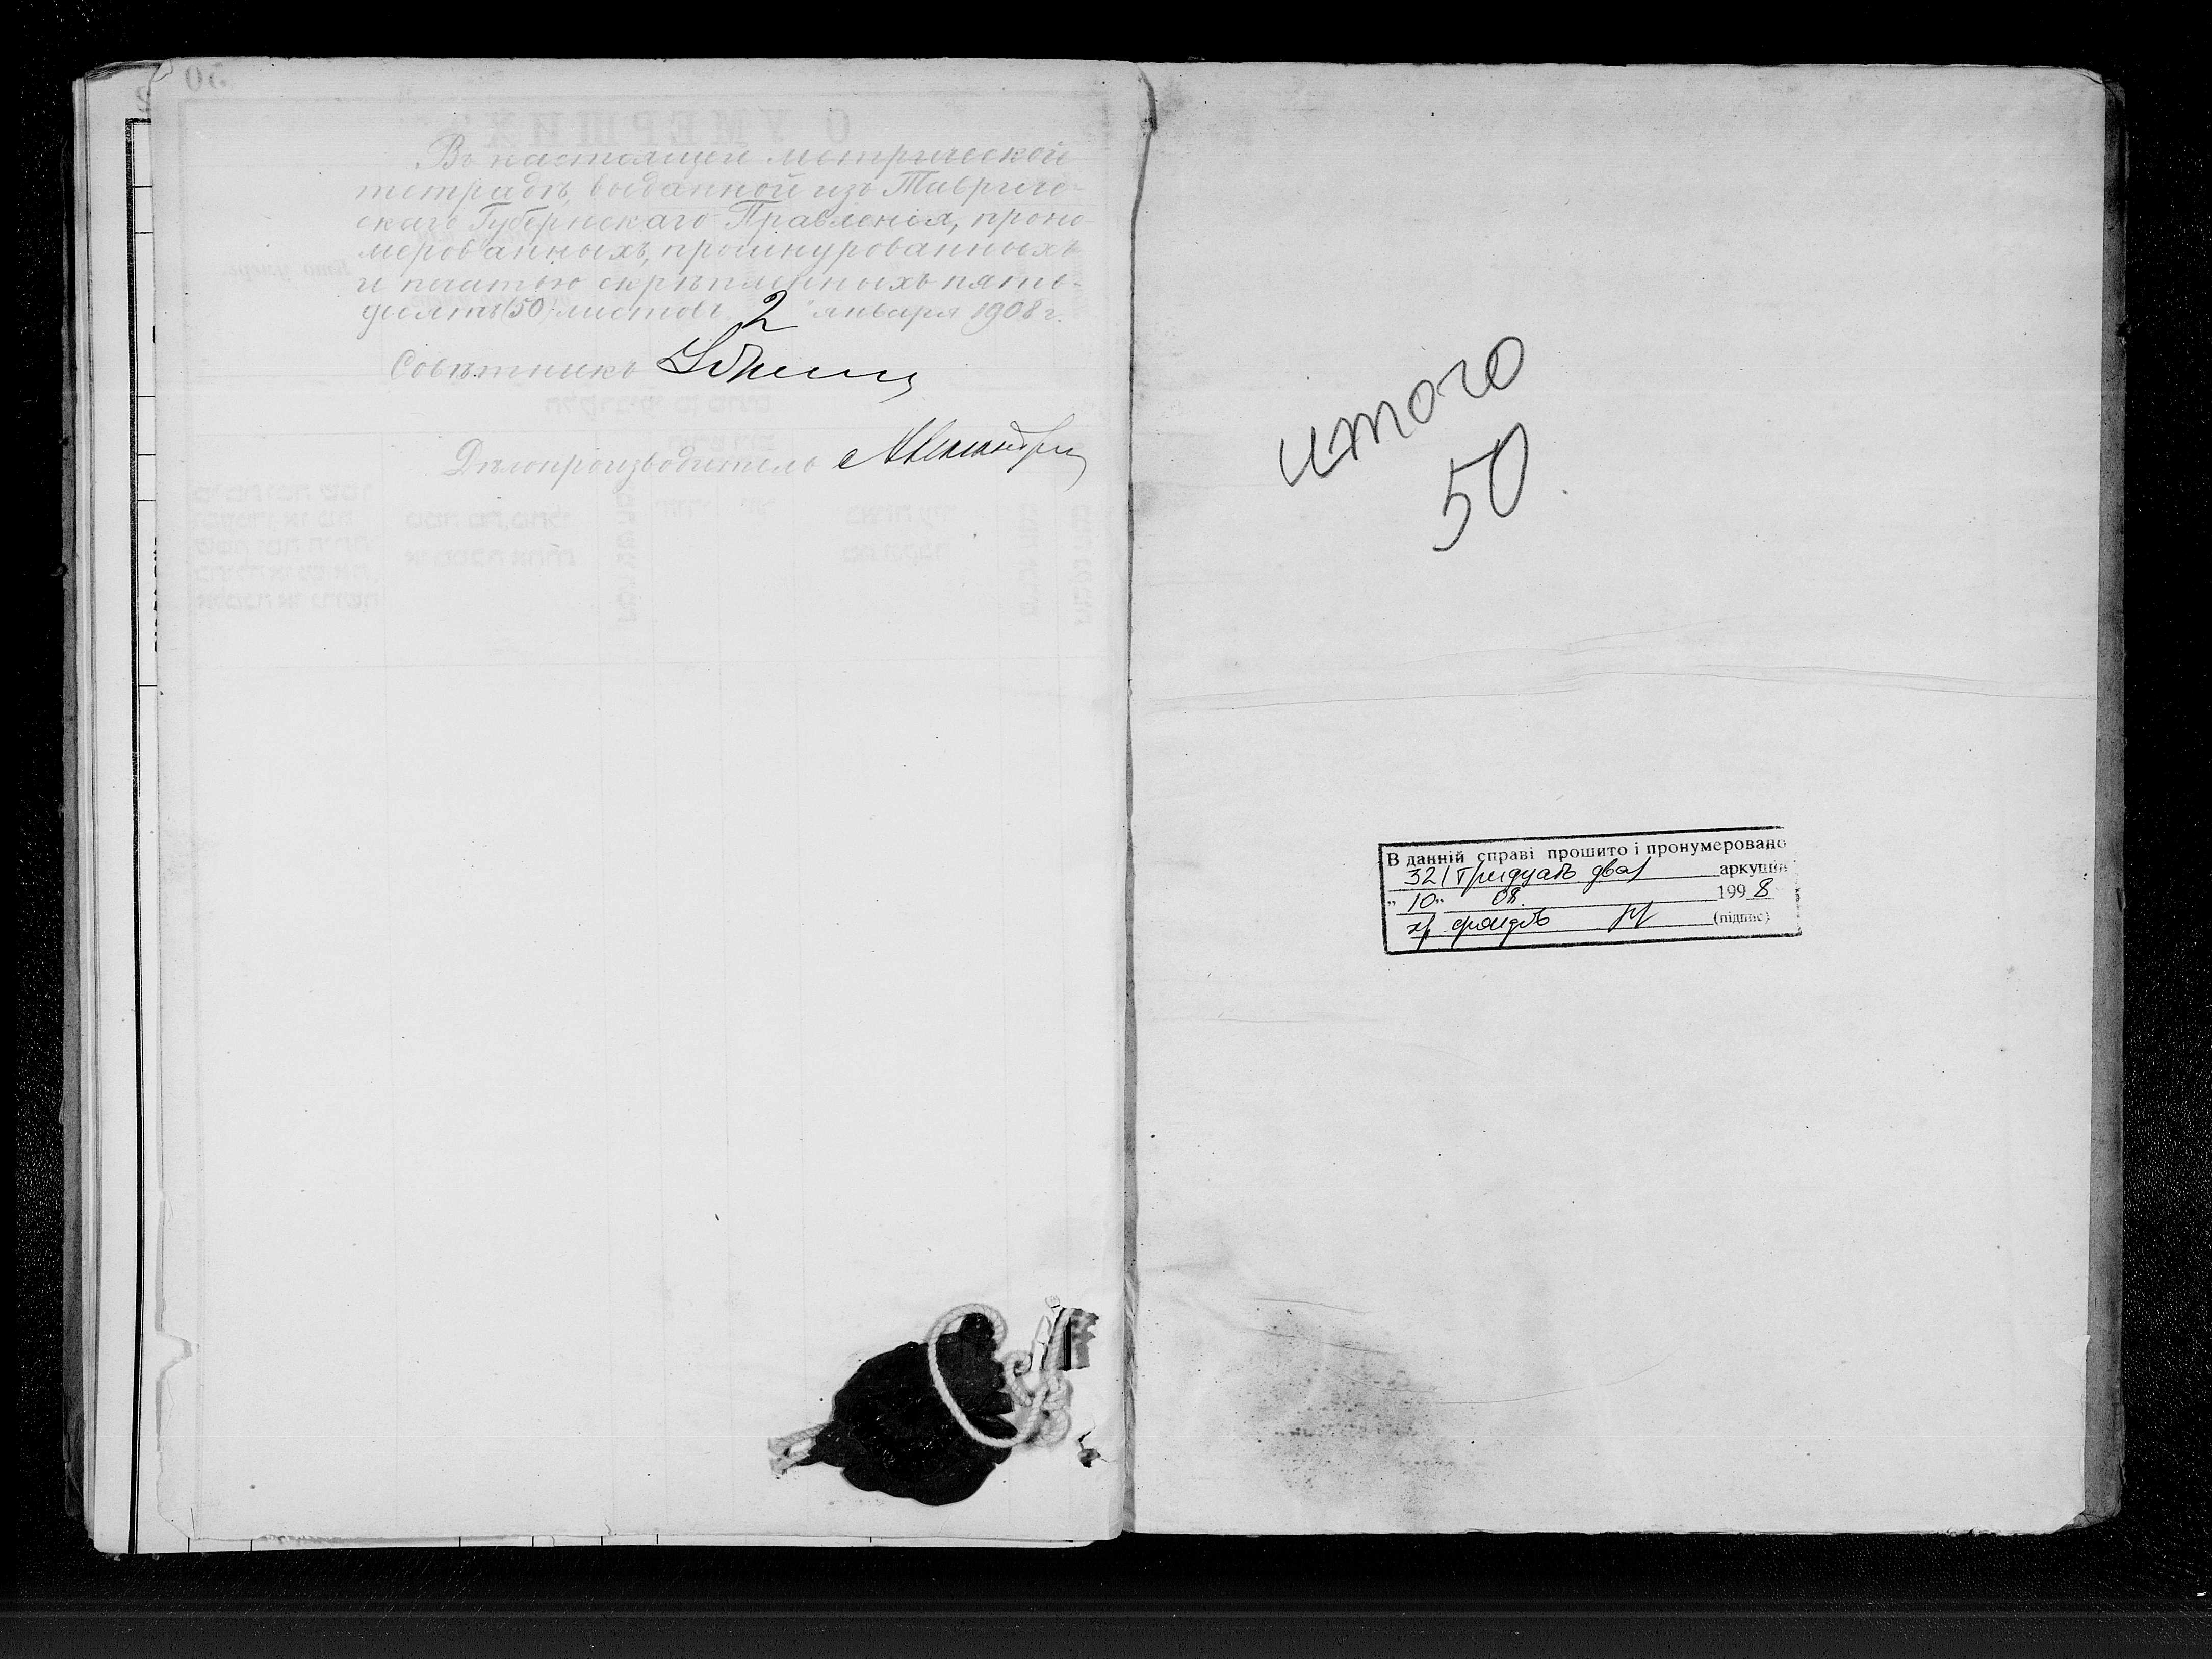 Въ настоящей метрической
тетрадѣ, выданной изъ Тавриче-
скаго Губернскаго Правленія, проно-
мерованныхъ, прошнурованныхъ
и печатью скрѣпленныхъ пять-
десятъ (50) листовъ. 2 " января 1908 г.
Совѣтникъ
Дѣлопроизводитель
итого
50
В данній справі прошито і пронумеровано
32 (тридцать два) аркушів
" 10 " 08 1998
(підпис)